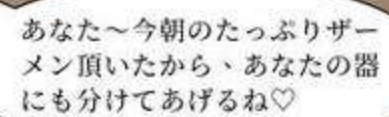 あなた～今朝のたっぷりザー
メン頂いたから、あなたの器
にも分けてあげるね♡